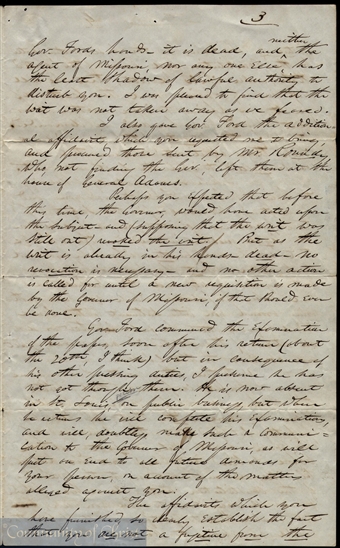 3
Gov. Fords hands it is dead, and neither the
agent of Missouri, nor any one else has
the least shadow of lawful authority to
disturb you. I was pleased to find that the
writ was not taken away as we feared.
I also gave Gov Ford the addition
al affidavits which you requested me to bring,
and procured those sent by Mr.
who not finding the Gov. left them at the
house of General Adams.
Perhaps you expected that before
this time, the Governor, would have acted upon
the subject and (supposing that the writ was
still out) revoked the writ. But as the
writ is already in his hands dead no
revocation is necessary and no other action
is called for until a new requisition is made
by the Governor of Missouri, if that should ever
be done.
Gov Ford commenced the examination
of the papers soon after his return (about
the 20th, I think) but in consequence of
his other pressing duties, I presume he has
not got through them. He is now absent
in St. Louis on public business, but when
he returns he will complete his examination,
and will, doubtless make such a communi-
cation to the Governor of Missouri, as will
put an End to all future demands for
your person, on account of the matters
alleged against you.
The affidavits which you
have furnished so clearly establish the fact
that you are not a fugitive from the